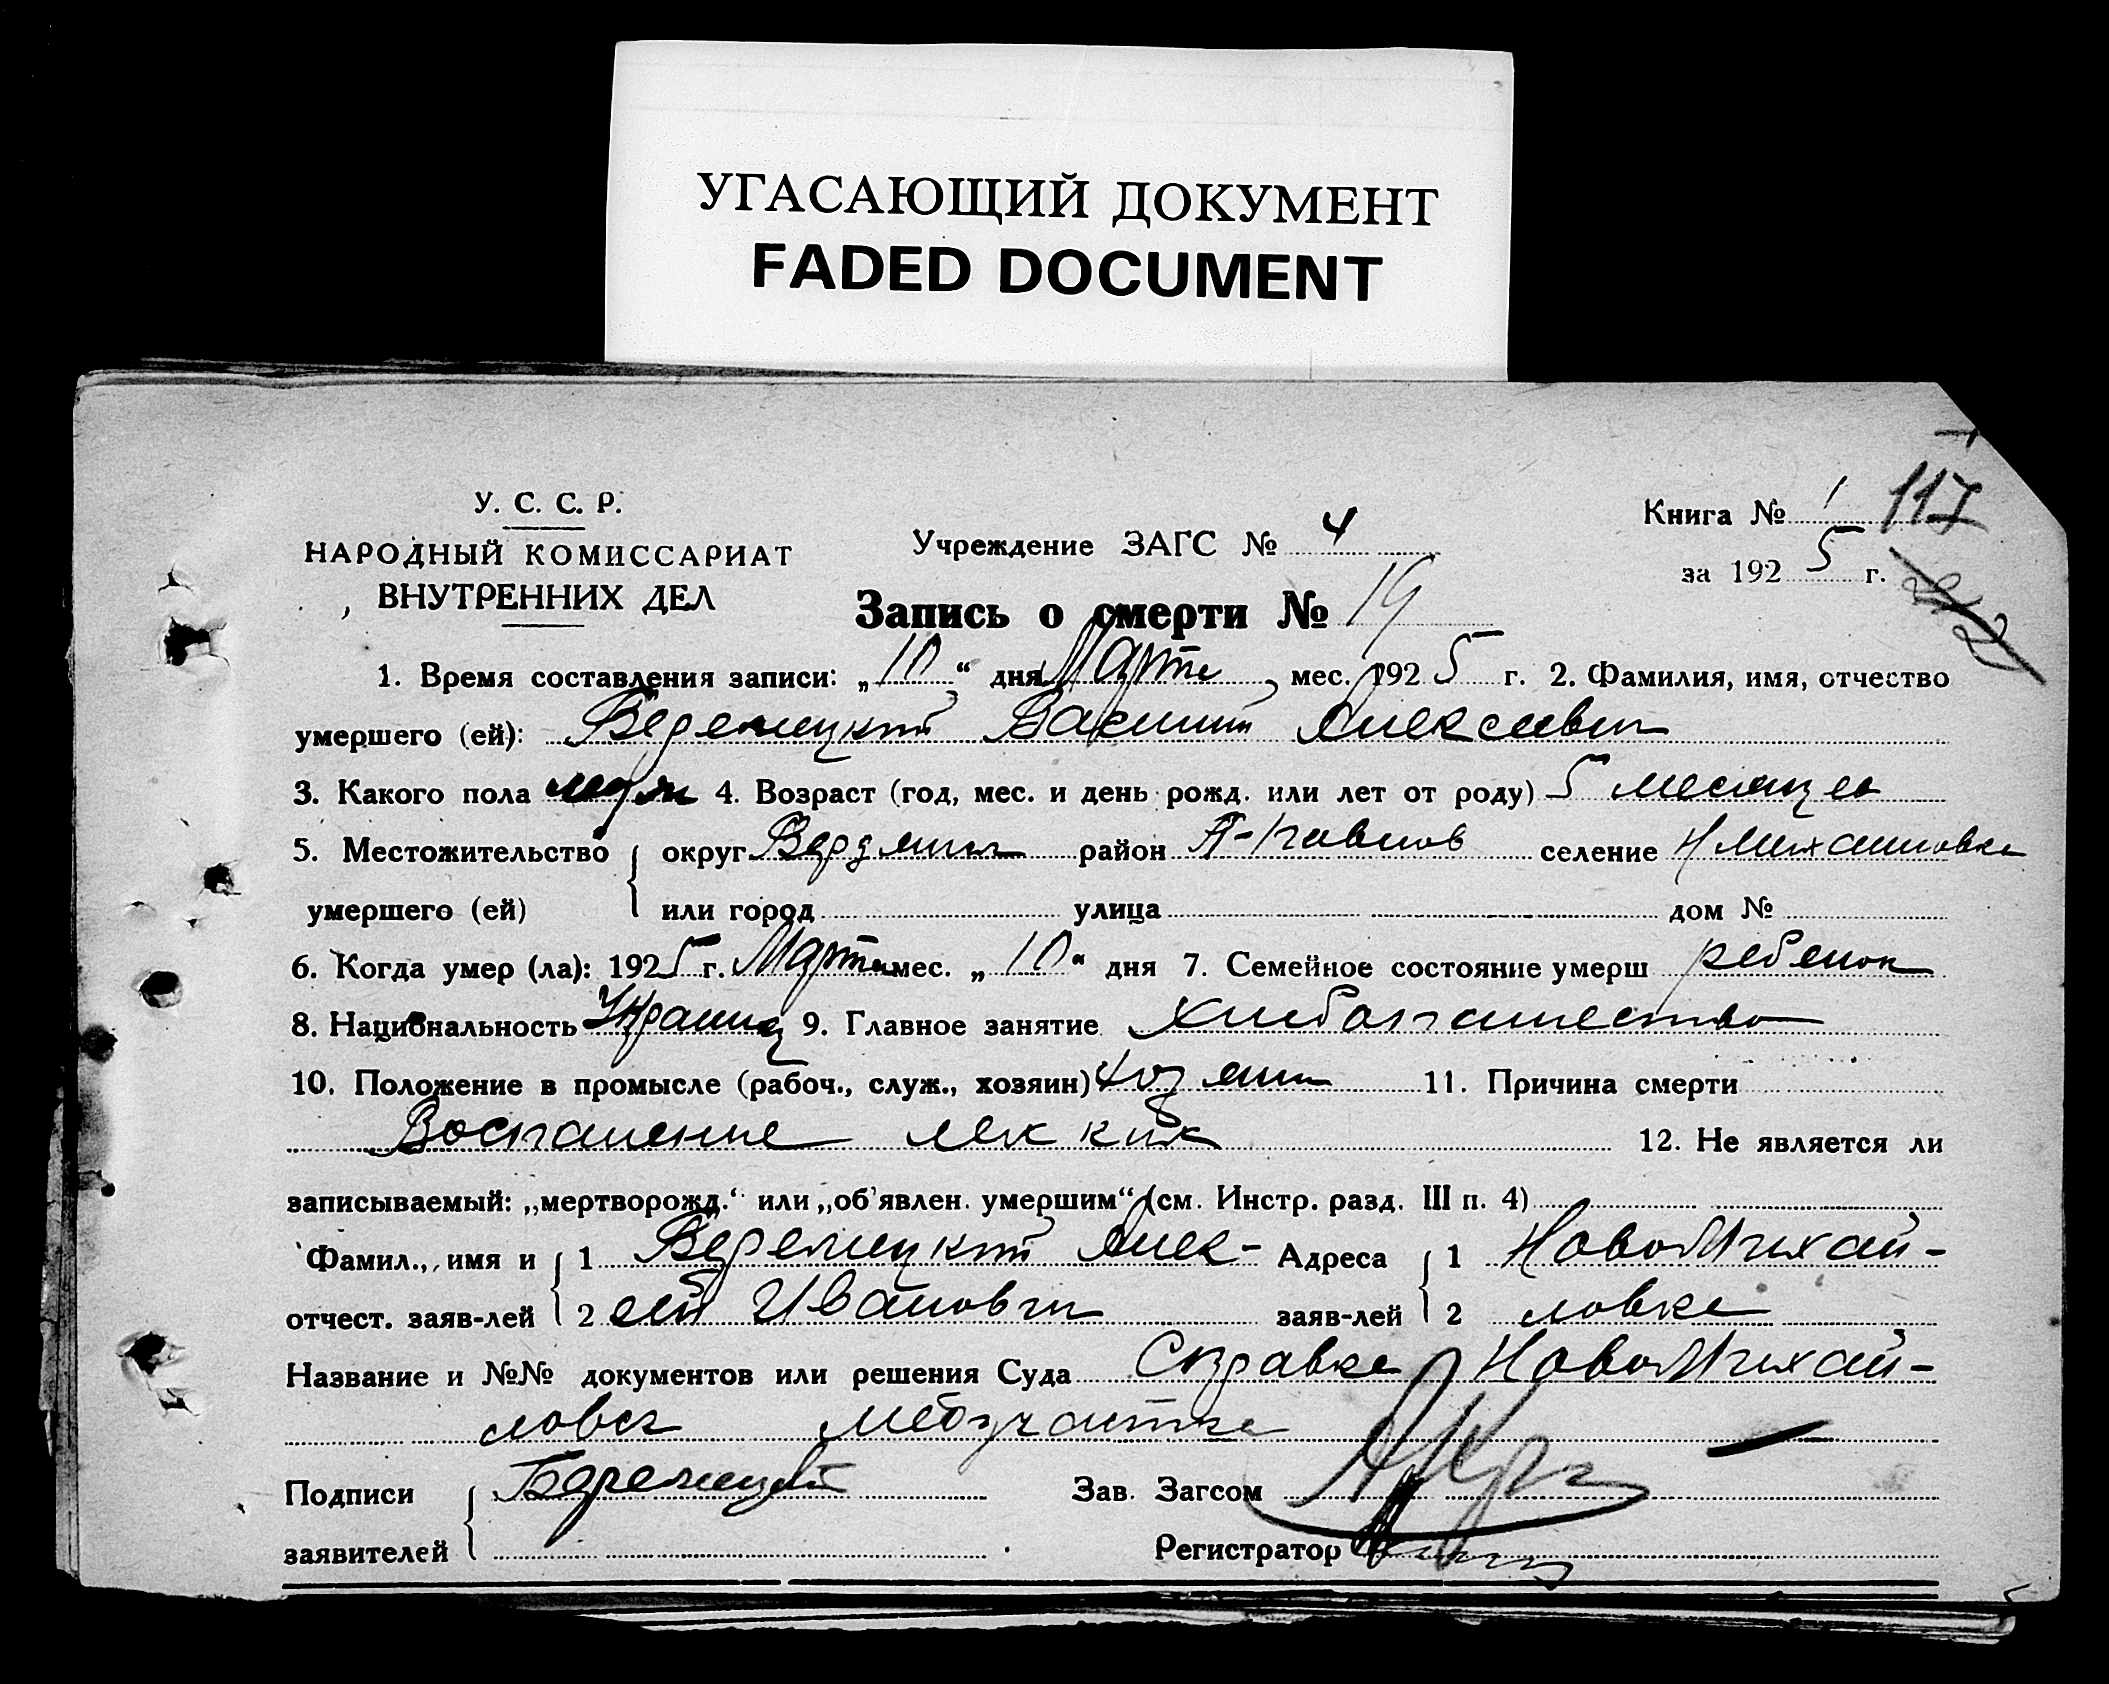 УГАСАЮЩИЙ ДОКУМЕНТ
FADED DOCUMENT
У. С. С. Р.
НАРОДНЫЙ КОМИССАРИАТ
ВНУТРЕННИХ ДЕЛ
Учреждение ЗАГС № 4
Книга № 1 117
за 1925 г.
Запись о смерти № 19
1. Время составления записи: „10“ дня Марта мес. 1925 г. 2. Фамилия, имя, отчество
умершего (ей): Василий Алексеевич
3. Какого пола муж 4. Возраст (год, мес. и день рожд. или лет от роду) 5 месяцев
5. Местожительство округ район селение Н Михайловка
умершего (ей) или город улица дом №
6. Когда умер (ла): 1925 г. Марта мес. „10“ дня 7. Семейное состояние умерш ребенок
8. Национальность Украинец 9. Главное занятие хлебопашество
10. Положение в промысле (рабоч., служ., хозяин) 11. Причина смерти
Воспаление легких 12. Не является ли
записываемый: „мертворожд.“ или „об'явлен. умершим“ (см. Инстр. разд. III п. 4)
Фамил., имя и 1 Алек- Адреса 1 НовоМихай-
отчест. заяв-лей 2 сей Иванович заяв-лей 2 ловка
Название и №№ документов или решения Суда Справка НовоМихай-
ловск медучастка
Подписи Зав. Загсом
заявителей Регистратор